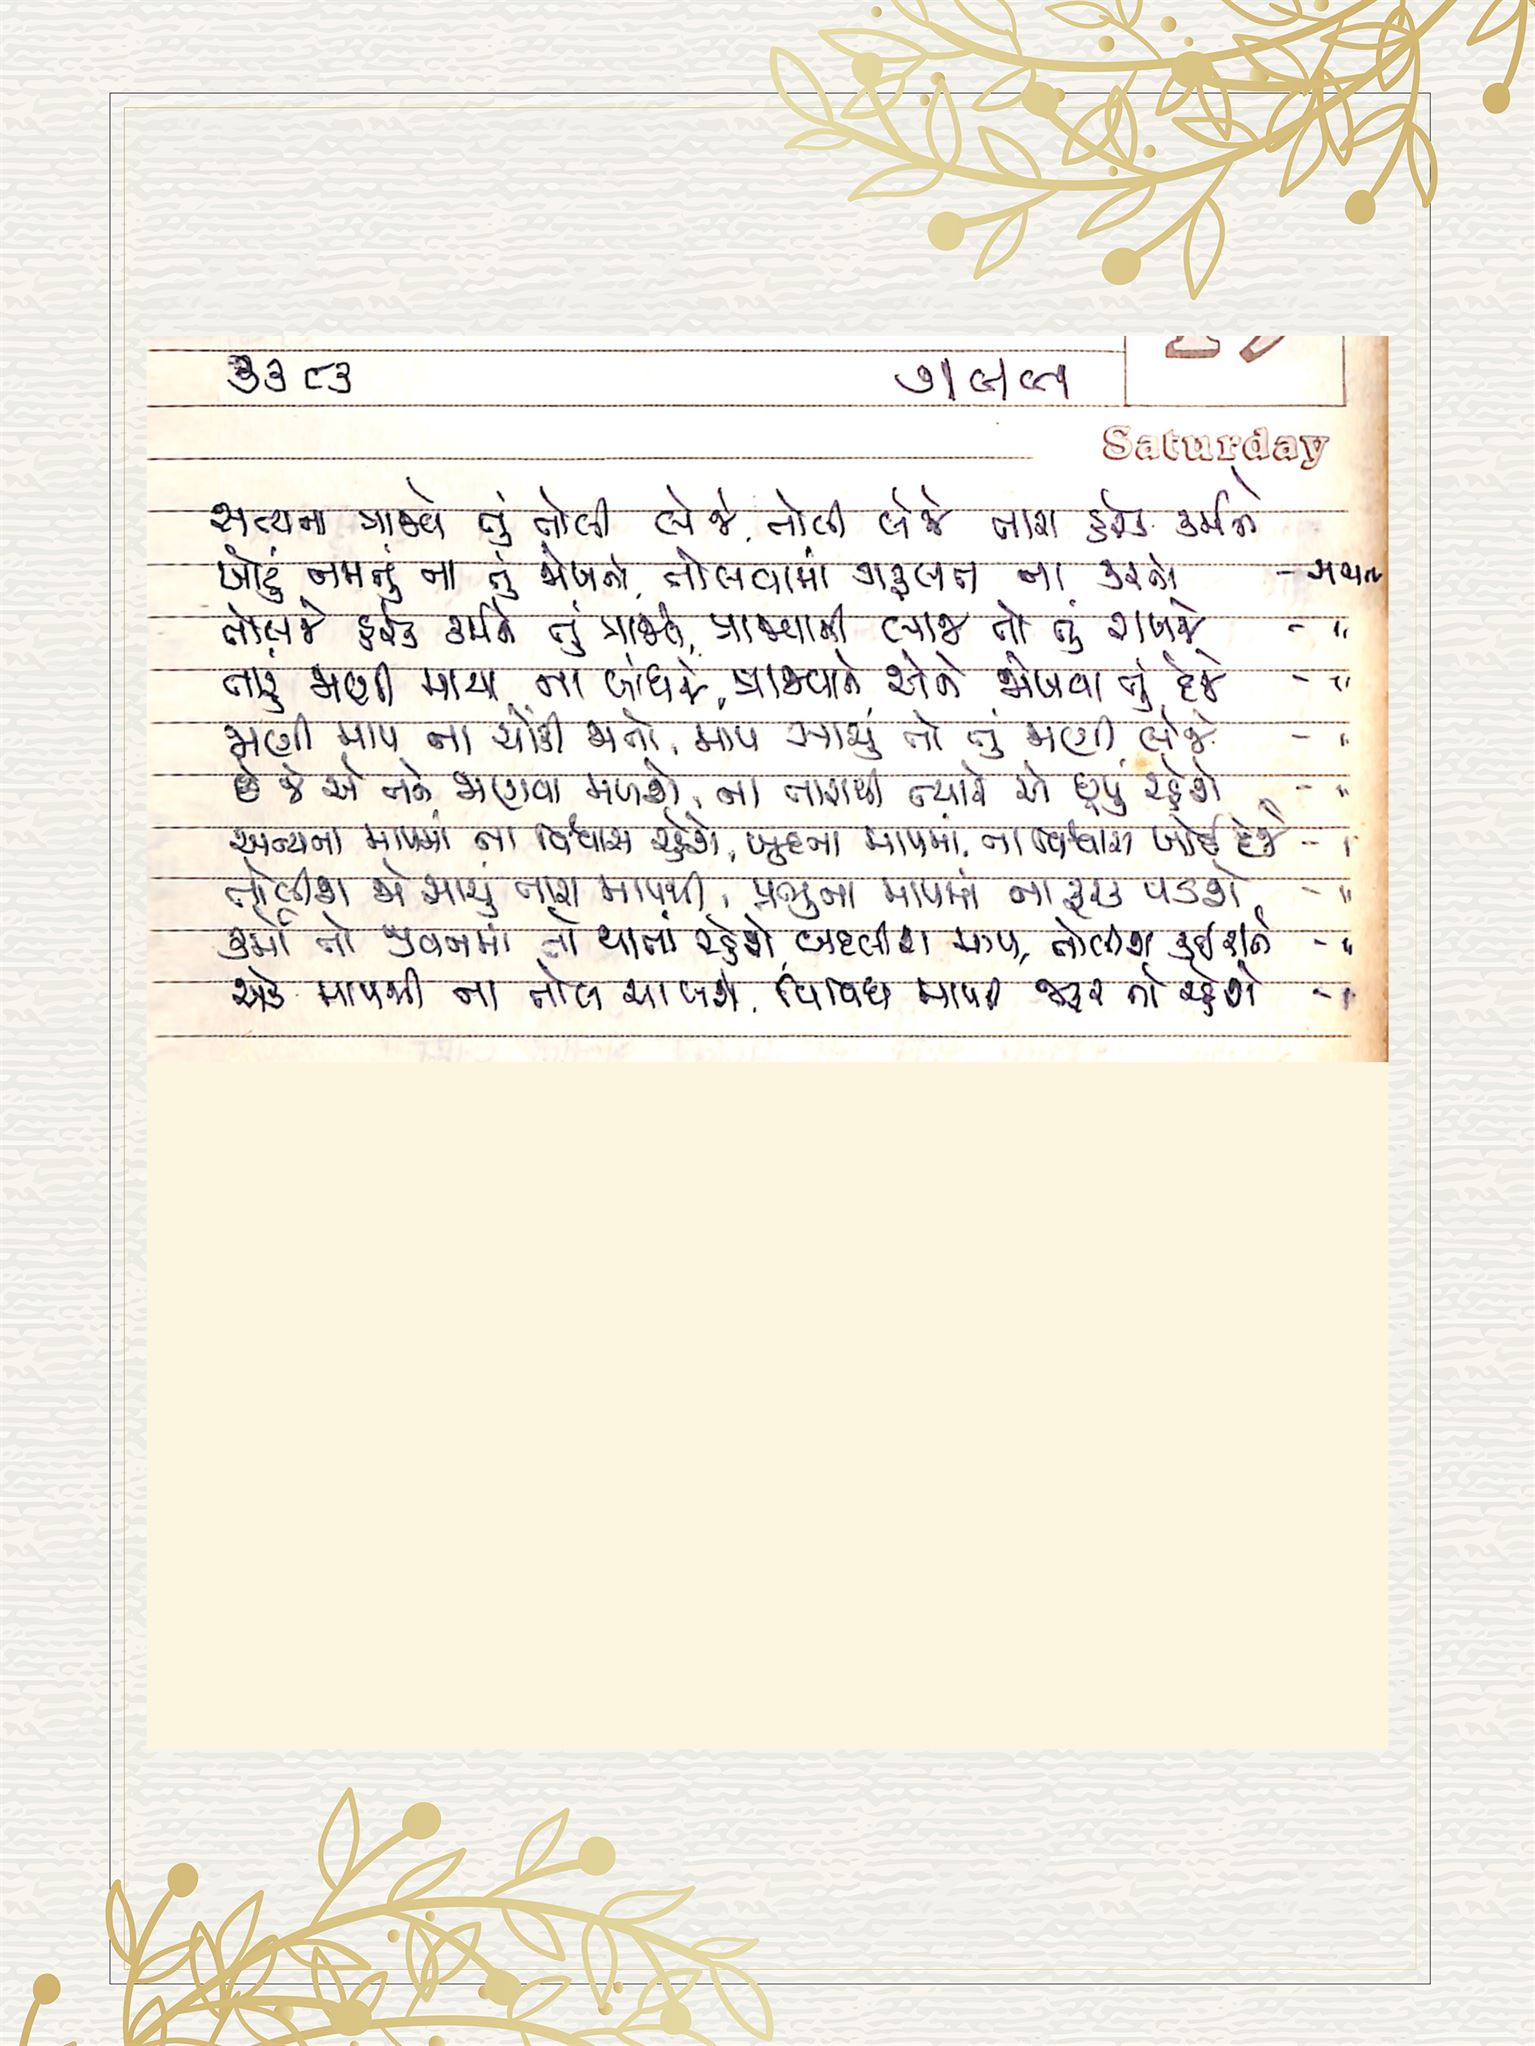 ૩૩૮૩ ૭/૯/૯૧
Saturday
સત્યના ત્રાજવે તું તોલી લેજે, તોલી લેજે તારા હરેક કર્મને
ખોટું નમતું ના તું જોખતો, તોલવામાં ગફલત ના કરતો
તોલજે હરેક કર્મને તું ત્રાજવે, ત્રાજવાની લાજ તો તું રાખજે
તારું ગણી માયા ના બાંધજે, ત્રાજવાને એને જોખવા તું દેજે
ગણી માપ ના ચોંકી જાતો, માપ સાચું તો તું ગણી લેજે
છે જે એ તને જાણવા મળશે, ના તારાથી ત્યારે એ છૂપું રહેશે
અન્યના માપમાં ના વિશ્વાસ રહેશે, ખુદના માપમાં ના વિશ્વાસ ખોઈ દેજે
તોલીશ જો સાચું તારા માપથી, પ્રભુના માપમાં ના ફરક પડશે
કર્મો તો જીવનમાં તો થાતાં રહેશે, બદલીશ માપ, તોલીશ કઈ રીતે
એક માપથી ના તોલ ચાલશે, વિવિધ માપની જરૂર તો રહેશે